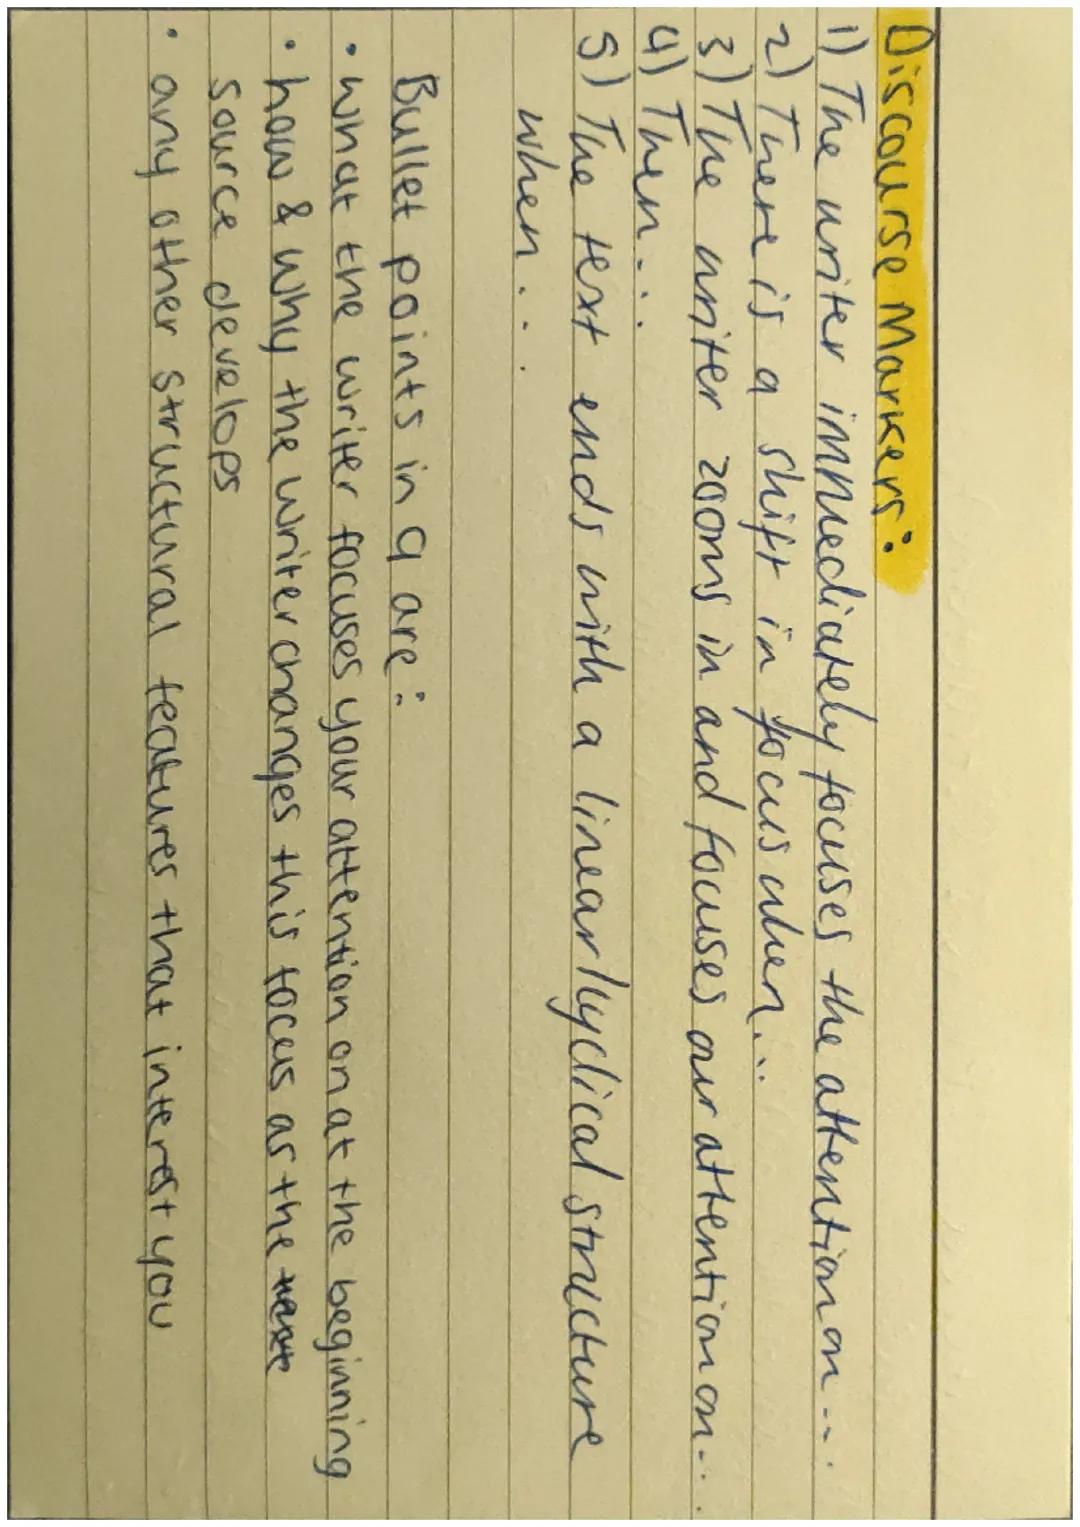 Discourse Markers:
1) The writer immediately focuses the attention on...
2) There is a shift in focus when...
3) The writer zooms in and focuses our attention on...
4) Then...
5) The text ends with a linear/cyclical structure
when...
Bullet points in q are:
• what the writer focuses your attention on at the beginning
• how & why the writer changes this focus as the
source develops
• any other structural features that interest you